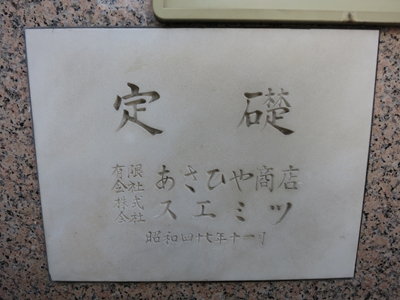 定礎
有限会社 あさひや商店
株式会社 スエミツ
昭和四十七年十一月